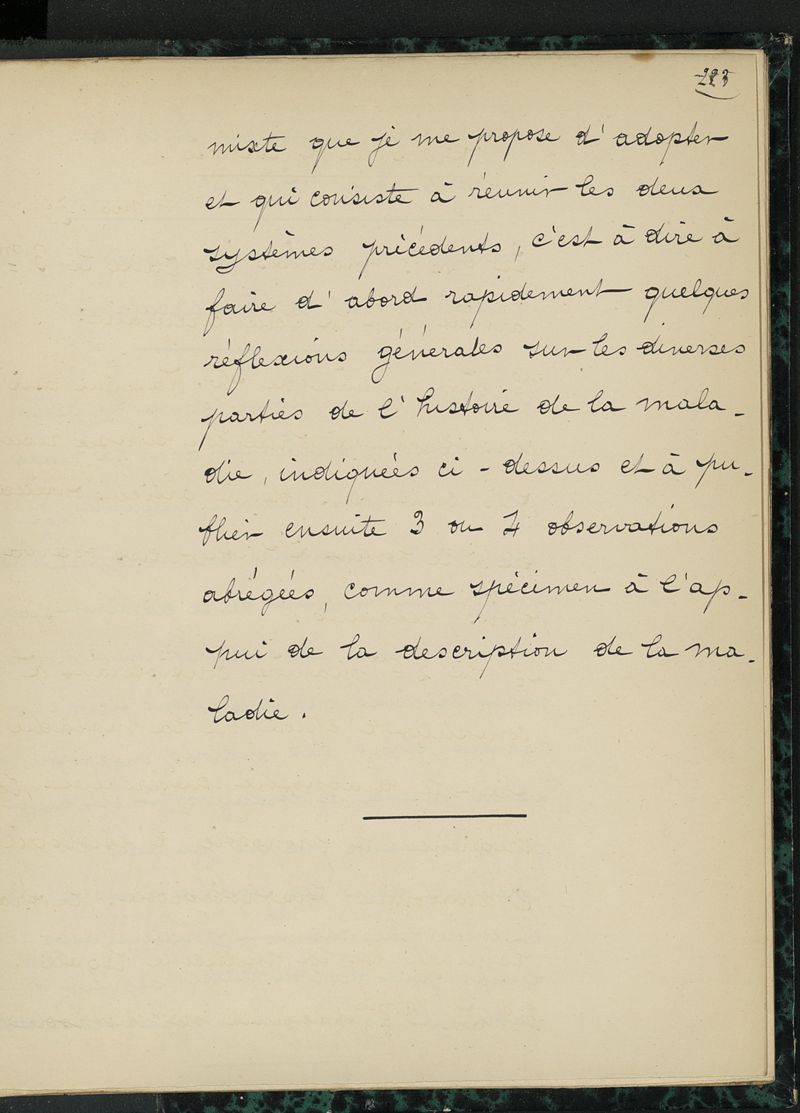 223
mixte que je me propose d'adopter
et qui consiste à réunir les deux
systèmes précédents, c'est à dire à
faire d'abord rapidement quelques
réflexions générales sur les diverses
parties de l'histoire de la mala-
die, indiquées ci-dessus et à pu-
blier ensuite 3 ou 4 observations
abrégées, comme spécimen à l'ap-
pui de la description de la ma-
ladie.